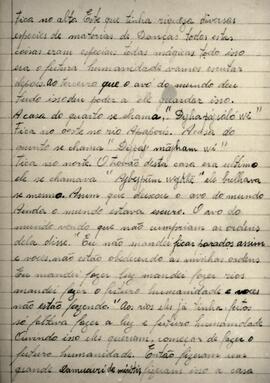 fica no alto. Este que tinha riqueza diversas
especie de matérias de Danças todas estas
coisas eram especiais todas mágicas tudo isso
era o futura humanidade vamos escutar
depois. Ao terceiro que o avo do mundo deu
tudo isso deu poder a ele guardar isso.
A casa do quarto se chama, "
Fica no oeste no rio Apaporis. A casa do
quinto se chama "
fica no norte. O trovão desta casa era ultimo
ele se chamava " " ele brilhava
se mesmo. Assim que deixou o avo do mundo
Ainda o mundo estava escuro. O avo do
mundo vendo que não cumpriam as ordens
dela disse. Eu não mandei ficar parados assim
e vocês não estão obedecendo as minhas ordens
Eu mandei fazer luz mandei fazer rios
mandei fazer o futuro humanidade e voces
não estão fazendo." Aos rios eles já tinha feitos
só faltava fazer a luz e futuro humanidade
Quando isso eles queriam começar de fazer o
futuro humanidade. Então fizeram uma
grande fizeram isso a casa